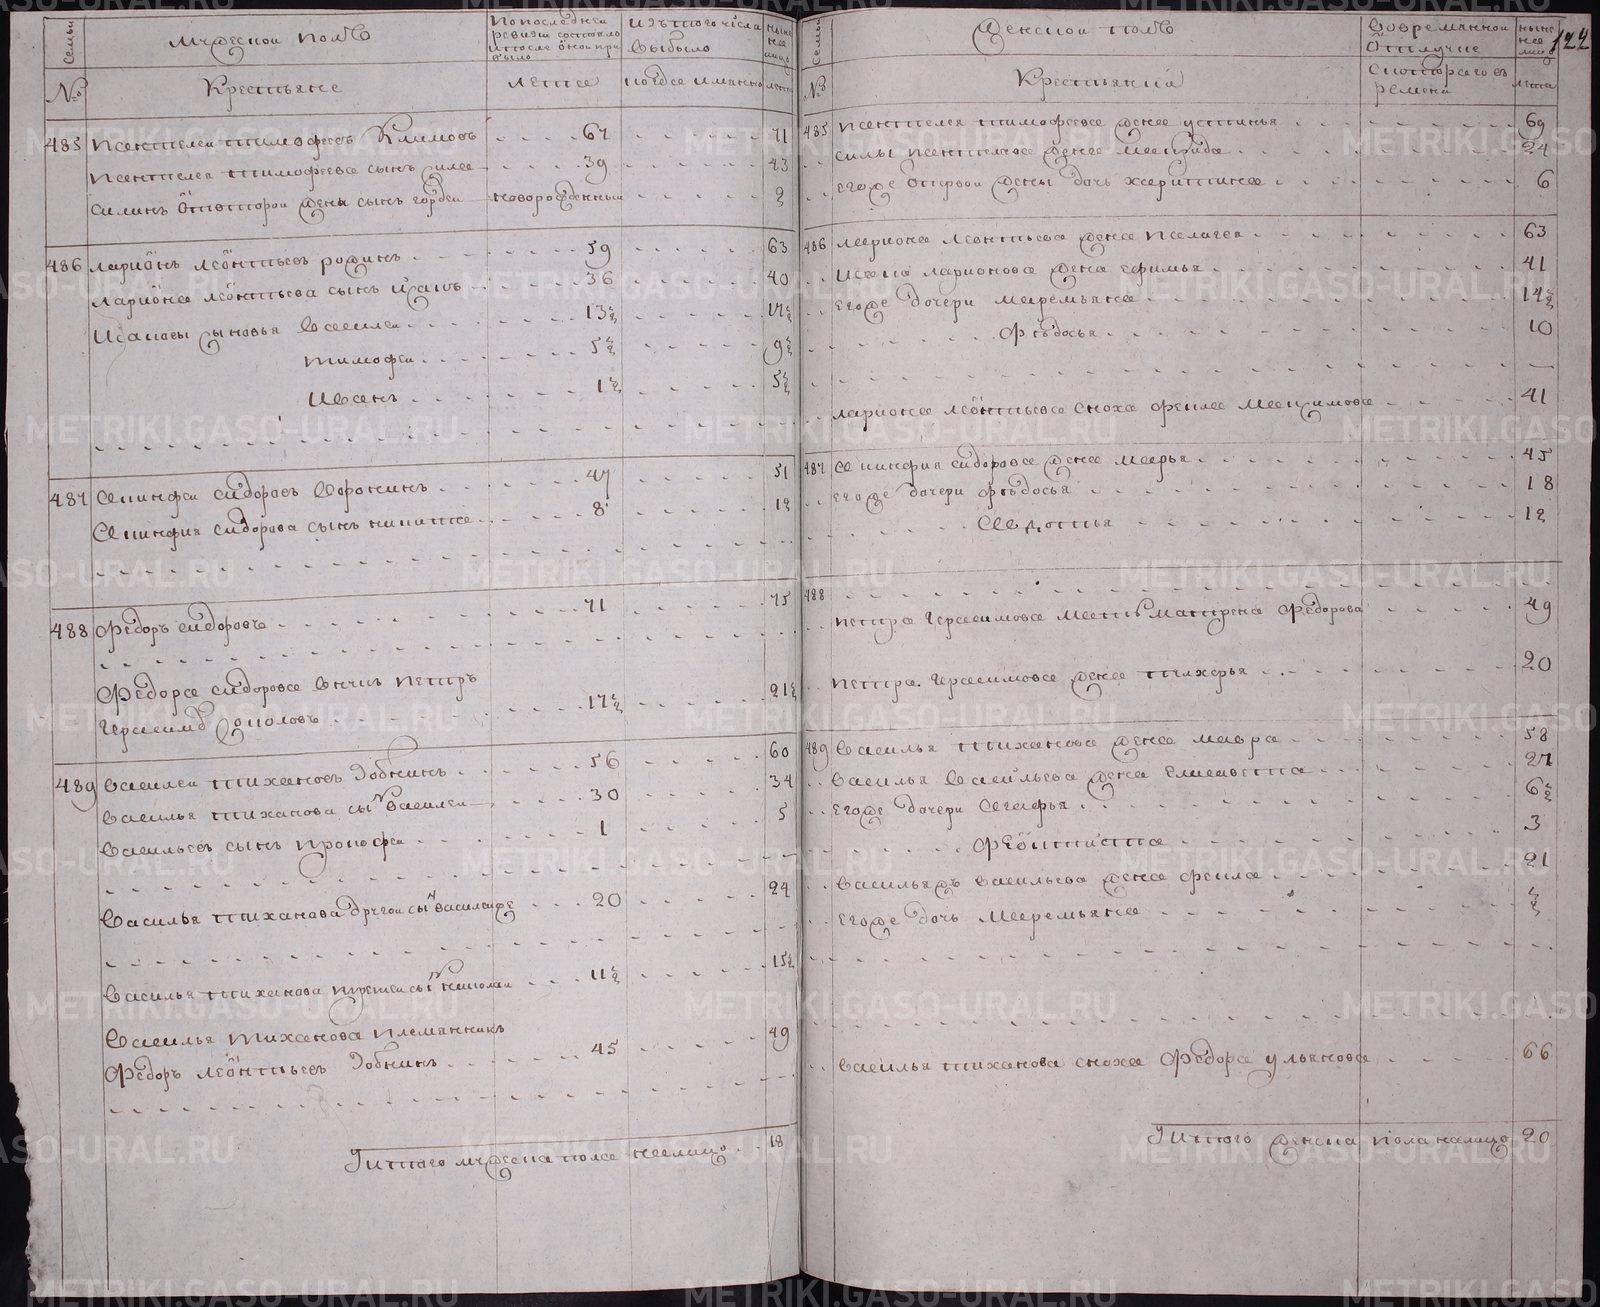 Мужескои полъ
Семьи
По последнеи
ревизии состояло
и после онои при
было
Изъ того числа
выбыло
ныне
на
лицо
№
Крестьяне
летъ
когда имянно
лета
485 Пантелеи Тимофеевъ Климовъ 67 71
Пантелея Тимофеева сынъ Сила 39 43
Силинъ от второи жены сынъ Гордеи новорожденныи 2
486 Ларионъ Леонтьевъ Родинъ 59 63
Лариона Леонтьева сынъ Исакъ 36 40
Исаковы сыновья Василеи 13½ 17½
Тимофеи 5½ 9½
Иванъ 1½ 5½
487 Акинфеи Сидоровъ Воронинъ 47 51
Акинфия Сидорова сынъ Никита 8 12
488 Федоръ Сидоровъ 71 75
Федора Сидорова внукъ Петръ
Герасимовъ 17½ 21½
489 Василеи Тихановъ Зобнинъ 56 60
Василья Тиханова сынъ Василеи 30 34
Васильевъ сынъ Прокофеи 1 5
Василья Тиханова другои сынъ Василеи же 20 24
Василья Тиханова третеи сынъ Николаи 11½ 15½
Василья Тиханова племянникъ
Федоръ Леонтьевъ Зобнинъ 45 49
Итого мужеска пола налицо 18
Женскои полъ
Семьи
Во временнои
отлучке
ныне
на
лицо
124
№
Крестьянки
с котораго в
ремени
лета
485 Пантелея Тимофеева жена Устинья 69
Силы Пантелеева жена 24
Его же от первои жены дочь Харитина 6
486 Лариона Леонтьева жена Пелагея 63
Исака Ларионова жена Ефимья 41
Его же дочери Маремьяна 14½
Федосья 10
Лариона Леонтьева сноха Фекла Максимова 41
487 Акинфия Сидорова жена Марья 45
Его же дочери Федосья 18
Авдотья 12
488
Петра Герасимова мать Матрена Федорова 49
Петра Герасимова жена Гликерья 20
489 Василья Тиханова жена Мавра 58
Василья Васильева жена Елисавета 27
Его же дочери Агафья 6½
Феоктиста 3
Василья жъ Васильева жена Фекла 21
Его же дочь Маремьяна ½
Василья Тиханова сноха Федора Ульянова 66
Итого женска пола налицо 20